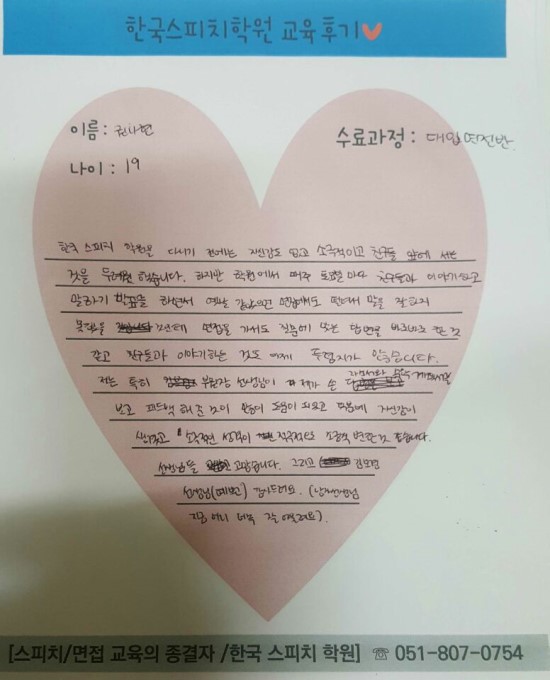 한국스피치학원 교육후기
이름: 권나현
수료과정: 대입면접반
나이: 19
한국 스피치 학원을 다니기 전에는 자신감도 없고 소극적이고 친구들 앞에 서는
것을 두려워 했습니다. 하지만 학원에서 매주 토요일마다 친구들과 이야기하고
말하기 발표를 하면서 옛날 같았으면 면접에도 떨려서 말을 잘 하지
못했을 텐데 면접을 가서도 질문에 맞는 답변을 바로바로 한 것
같고 친구들과 이야기하는 것도 이제 두렵지가 않습니다.
저는 특히 부원장 선생님이 제가 쓴 자기소개서
보고 피드백 해준 것이 많이 도움이 되었고 덕분에 자신감이
생겼고 소극적인 성격이 적극적으로 변한 것 같습니다.
선생님들 고맙습니다. 그리고
선생님(예쁜) 감사드려요.
지금 머리 너무 잘 어울려요).
[스피치/면접 교육의 종결자 /한국 스피치 학원] ☏ 051-807-0754